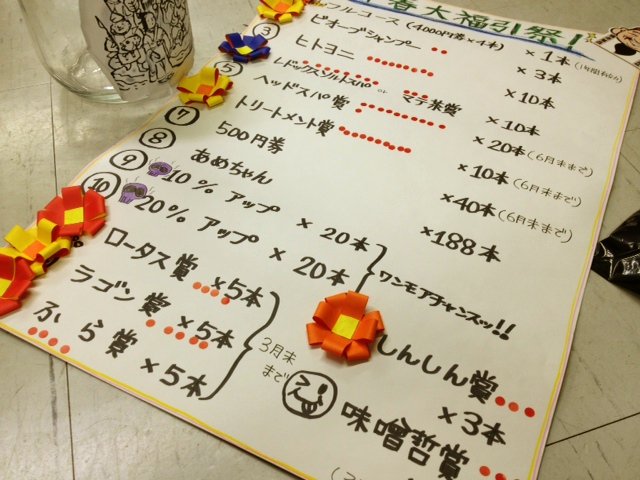 春大福引祭!
フルコース(4000円券×4本) ×1本(1年間有効)
③ ビオーブシャンプー ×3本
ヒトヨニ ×10本
⑤ レドックスソルトスパ or マテ茶賞 ×10本
ヘッドスパ賞 ×20本(6月末まで)
⑦ トリートメント賞 ×10本(6月末まで)
⑧ 500円券 ×40本(6月末まで)
⑨ あめちゃん ×188本
⑩ 10% アップ ×20本
20% アップ ×20本
ワンモアチャンスッ!!
ロータス賞 ×5本
ラゴン賞 ×5本
ふら賞 ×5本
3月末まで
しんしん賞 ×3本
味噌哲賞